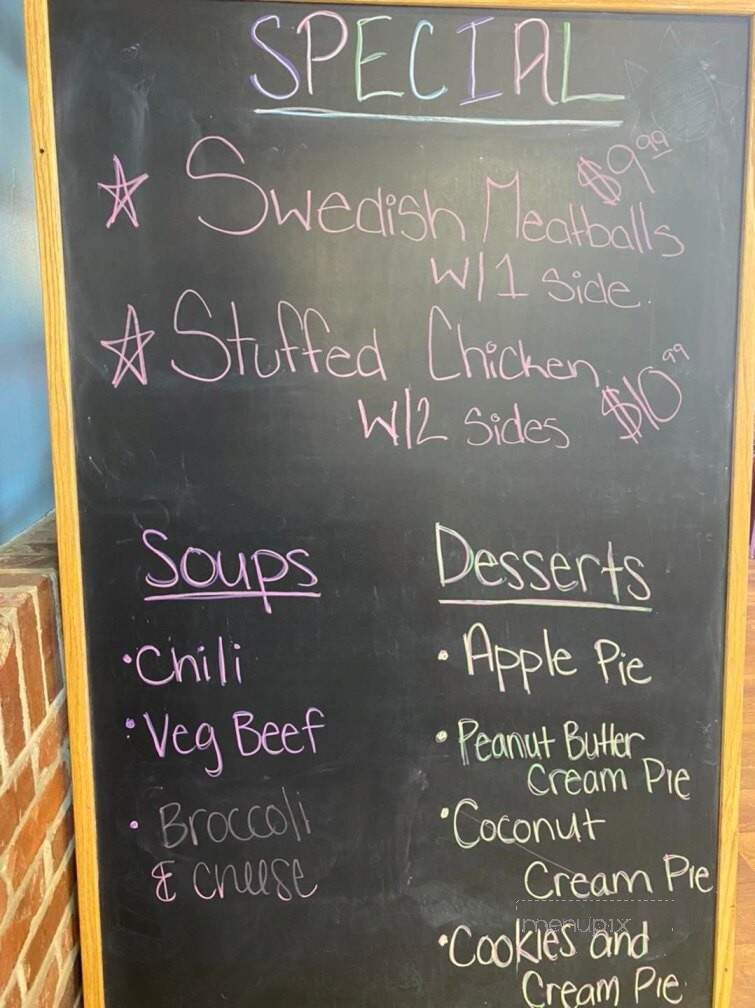 SPECIAL
☆ Swedish Meatballs $9.99
W/1 side.
☆ Stuffed Chicken
W/2 sides $10.99
Soups
•Chili
•Veg Beef
•Broccoli
& cheese
Desserts
•Apple Pie
•Peanut Butter
Cream Pie
•Coconut
Cream Pie
menupix
•Cookies and
Cream Pie